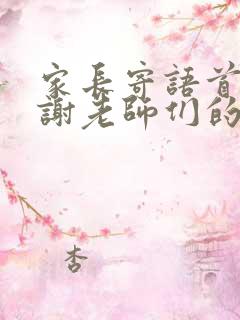 家長寄語首
謝老師们的
杏